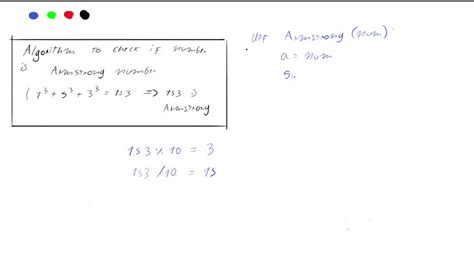 Algorithm to check if number
is Armstrong number
( 1³ + 5³ + 3³ = 153 => 153 is
Armstrong
153 % 10 = 3
153 / 10 = 15
def Armstrong (num):
a = num
s